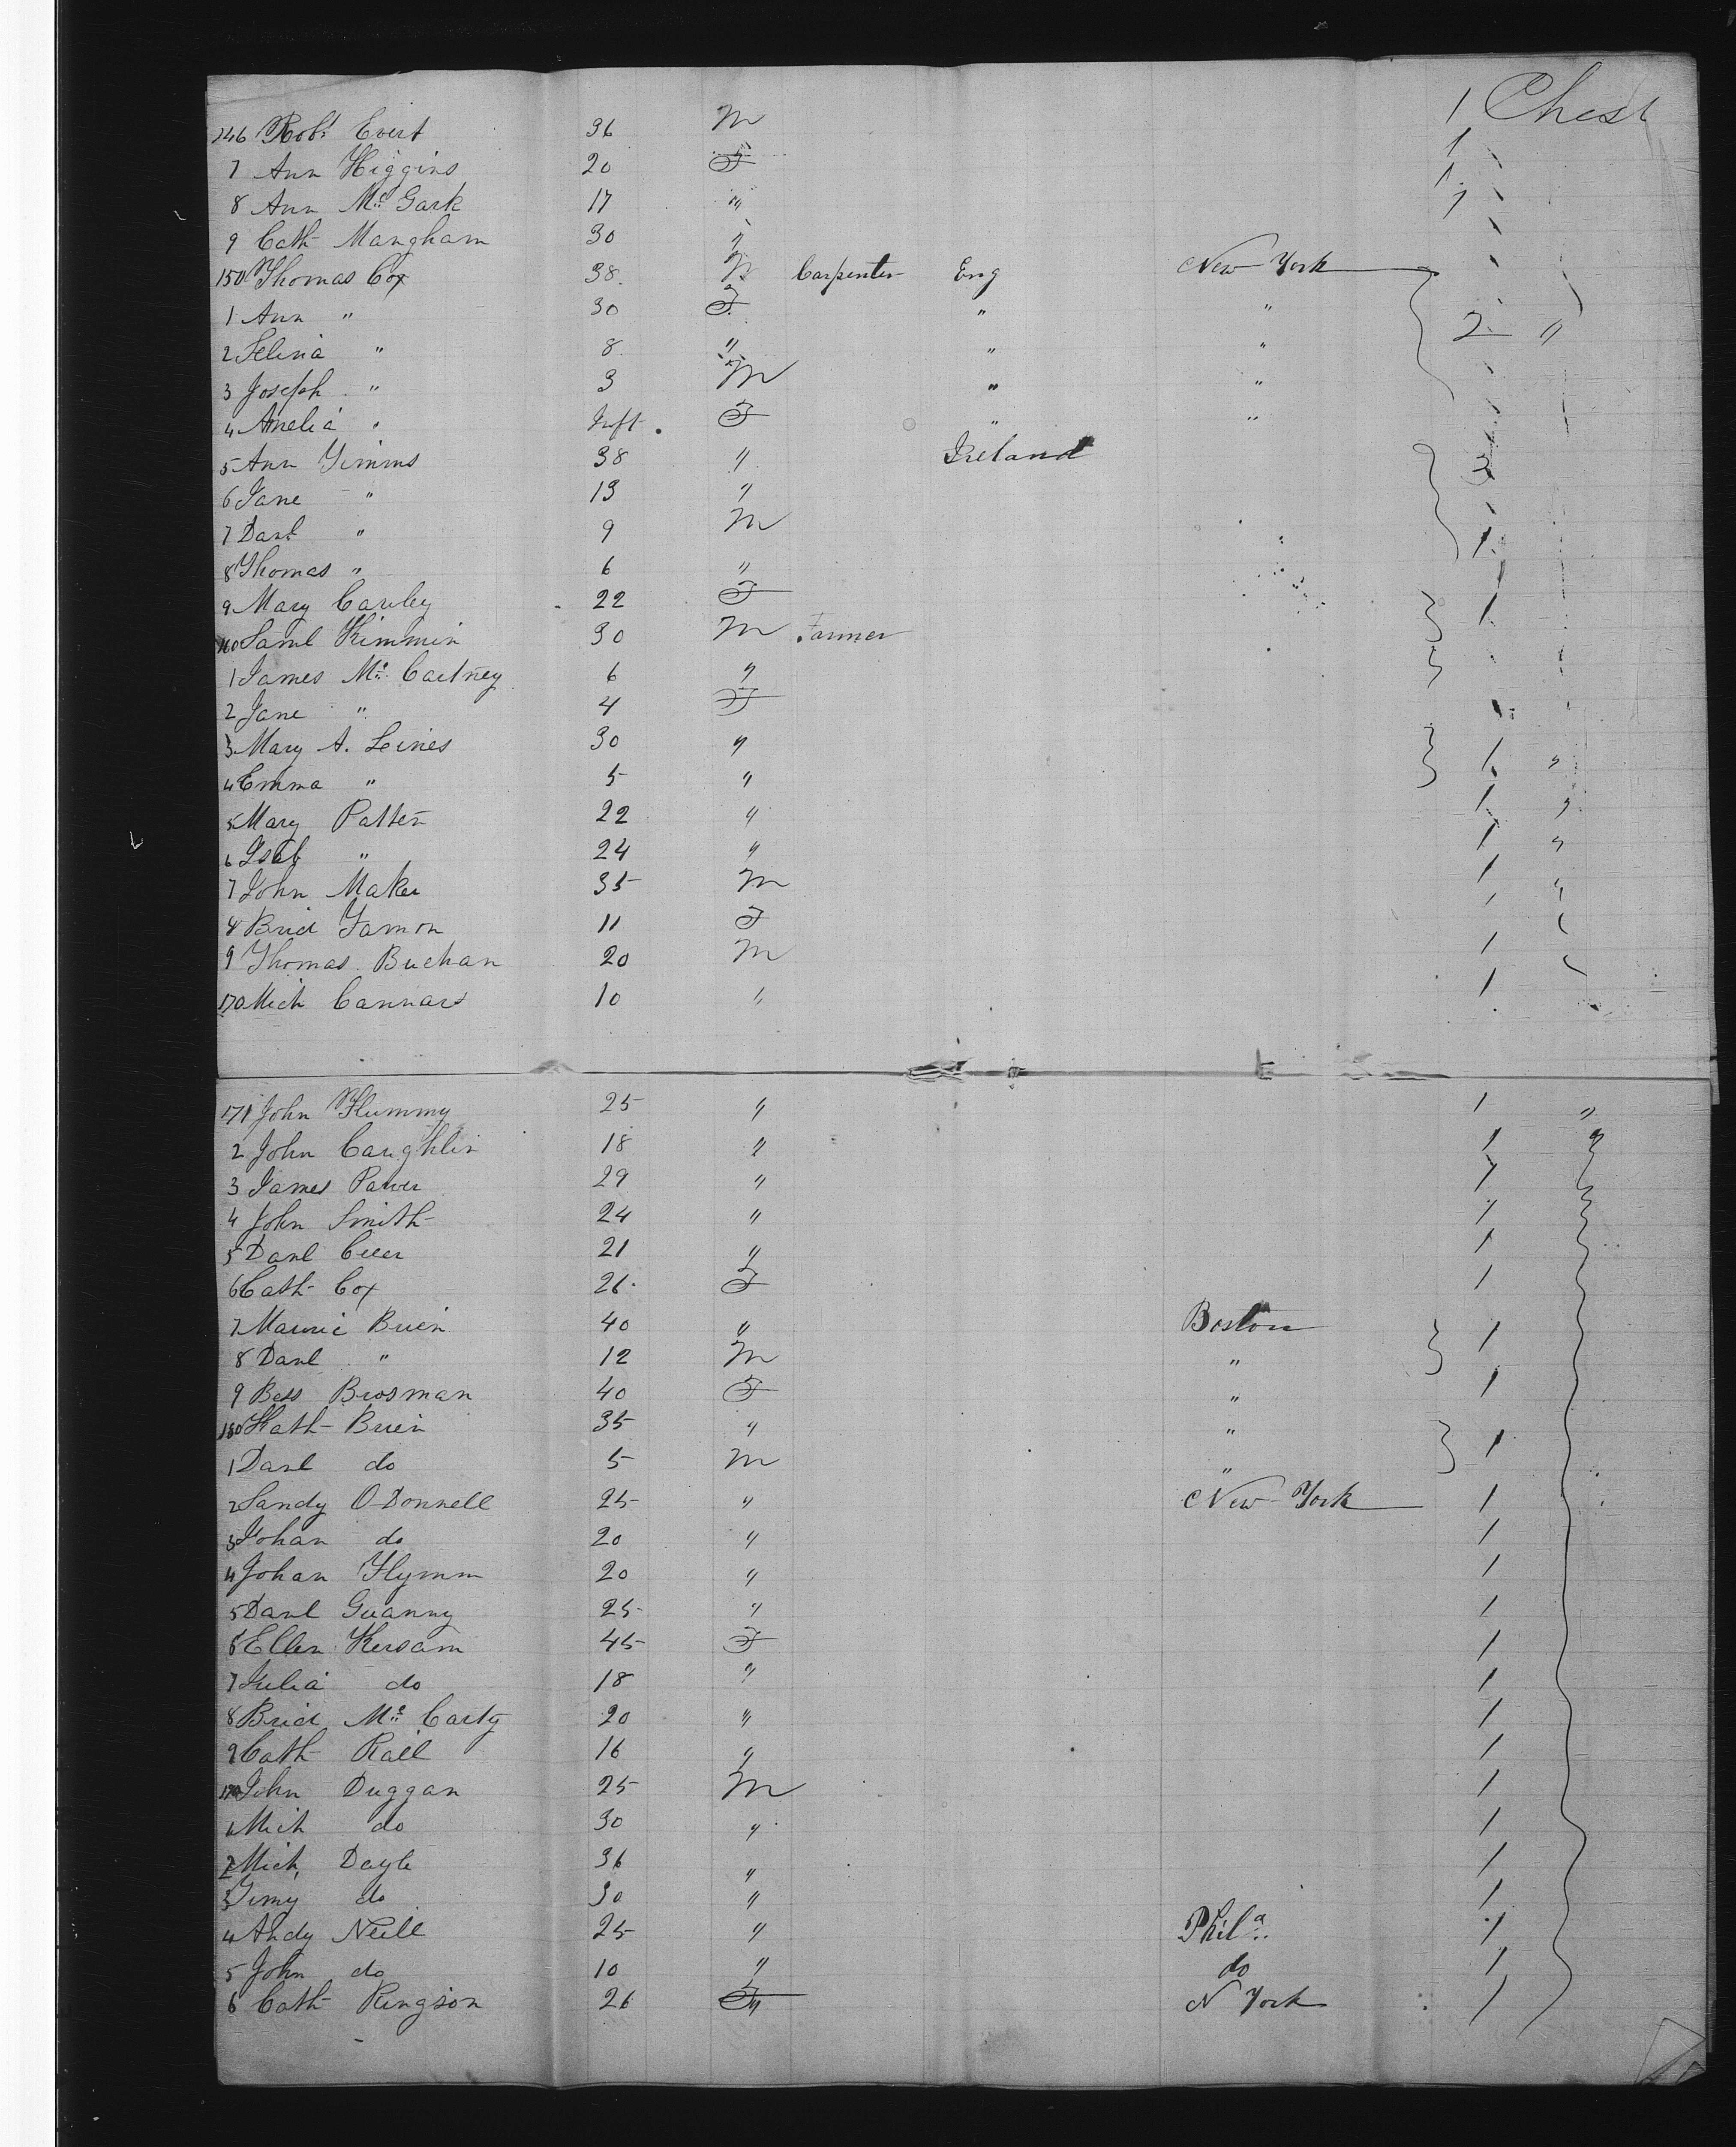 146 Robt Evert 36 M 1 Chest
7 Ann Higgins 20 F 1
8 Ann Mc Gark 17 " 1
9 Cath Mangham 30 " 1
150 Thomas Cox 38 M Carpenter Eng New York
1 Ann " 30 F " " 2 "
2 Selina " 8 " " "
3 Joseph " 3 M " "
4 Amelia " Inft F " "
5 Ann Timms 38 " Ireland 3
6 Jane " 13 "
7 Danl " 9 M 1
8 Thomas " 6 "
9 Mary Carley 22 F 1
160 Saml Kimmin 30 M Farmer
1 James Mc Cartney 6 "
2 Jane " 4 F
3 Mary A. Leines 30 " 1 "
4 Emma " 5 "
5 Mary Patten 22 " 1 "
6 Isab " 24 " 1 "
7 John Maker 35 M 1 "
8 Brid Tamon 11 F
9 Thomas Buchan 20 M 1
170 Mich Cannars 10 " 1
171 John Flummy 25 " 1 "
2 John Caughlin 18 " 1 "
3 James Power 29 " 1
4 John Smith 24 " 1
5 Danl Creer 21 " 1
6 Cath Cox 26 F 1
7 Maurie Brien 40 " Boston 1
8 Danl " 12 M "
9 Bess Brosman 40 F " 1
180 Kath Brien 35 " " 1
1 Danl do 5 M "
2 Sandy O Donnell 25 " New York 1
3 Johan do 20 " 1
4 Johan Flymm 20 " 1
5 Danl Guanny 25 " 1
6 Ellen Kersam 45 F 1
7 Julia do 18 " 1
8 Brid Mc Carty 20 " 1
9 Cath Rail 16 " 1
190 John Duggan 25 M 1
1 Mich do 30 " 1
2 Mich Dayle 36 " 1
3 Timy do 30 " 1
4 Andy Neill 25 " Phila 1
5 John do 10 " do 1
6 Cath Ringson 26 F N York 1